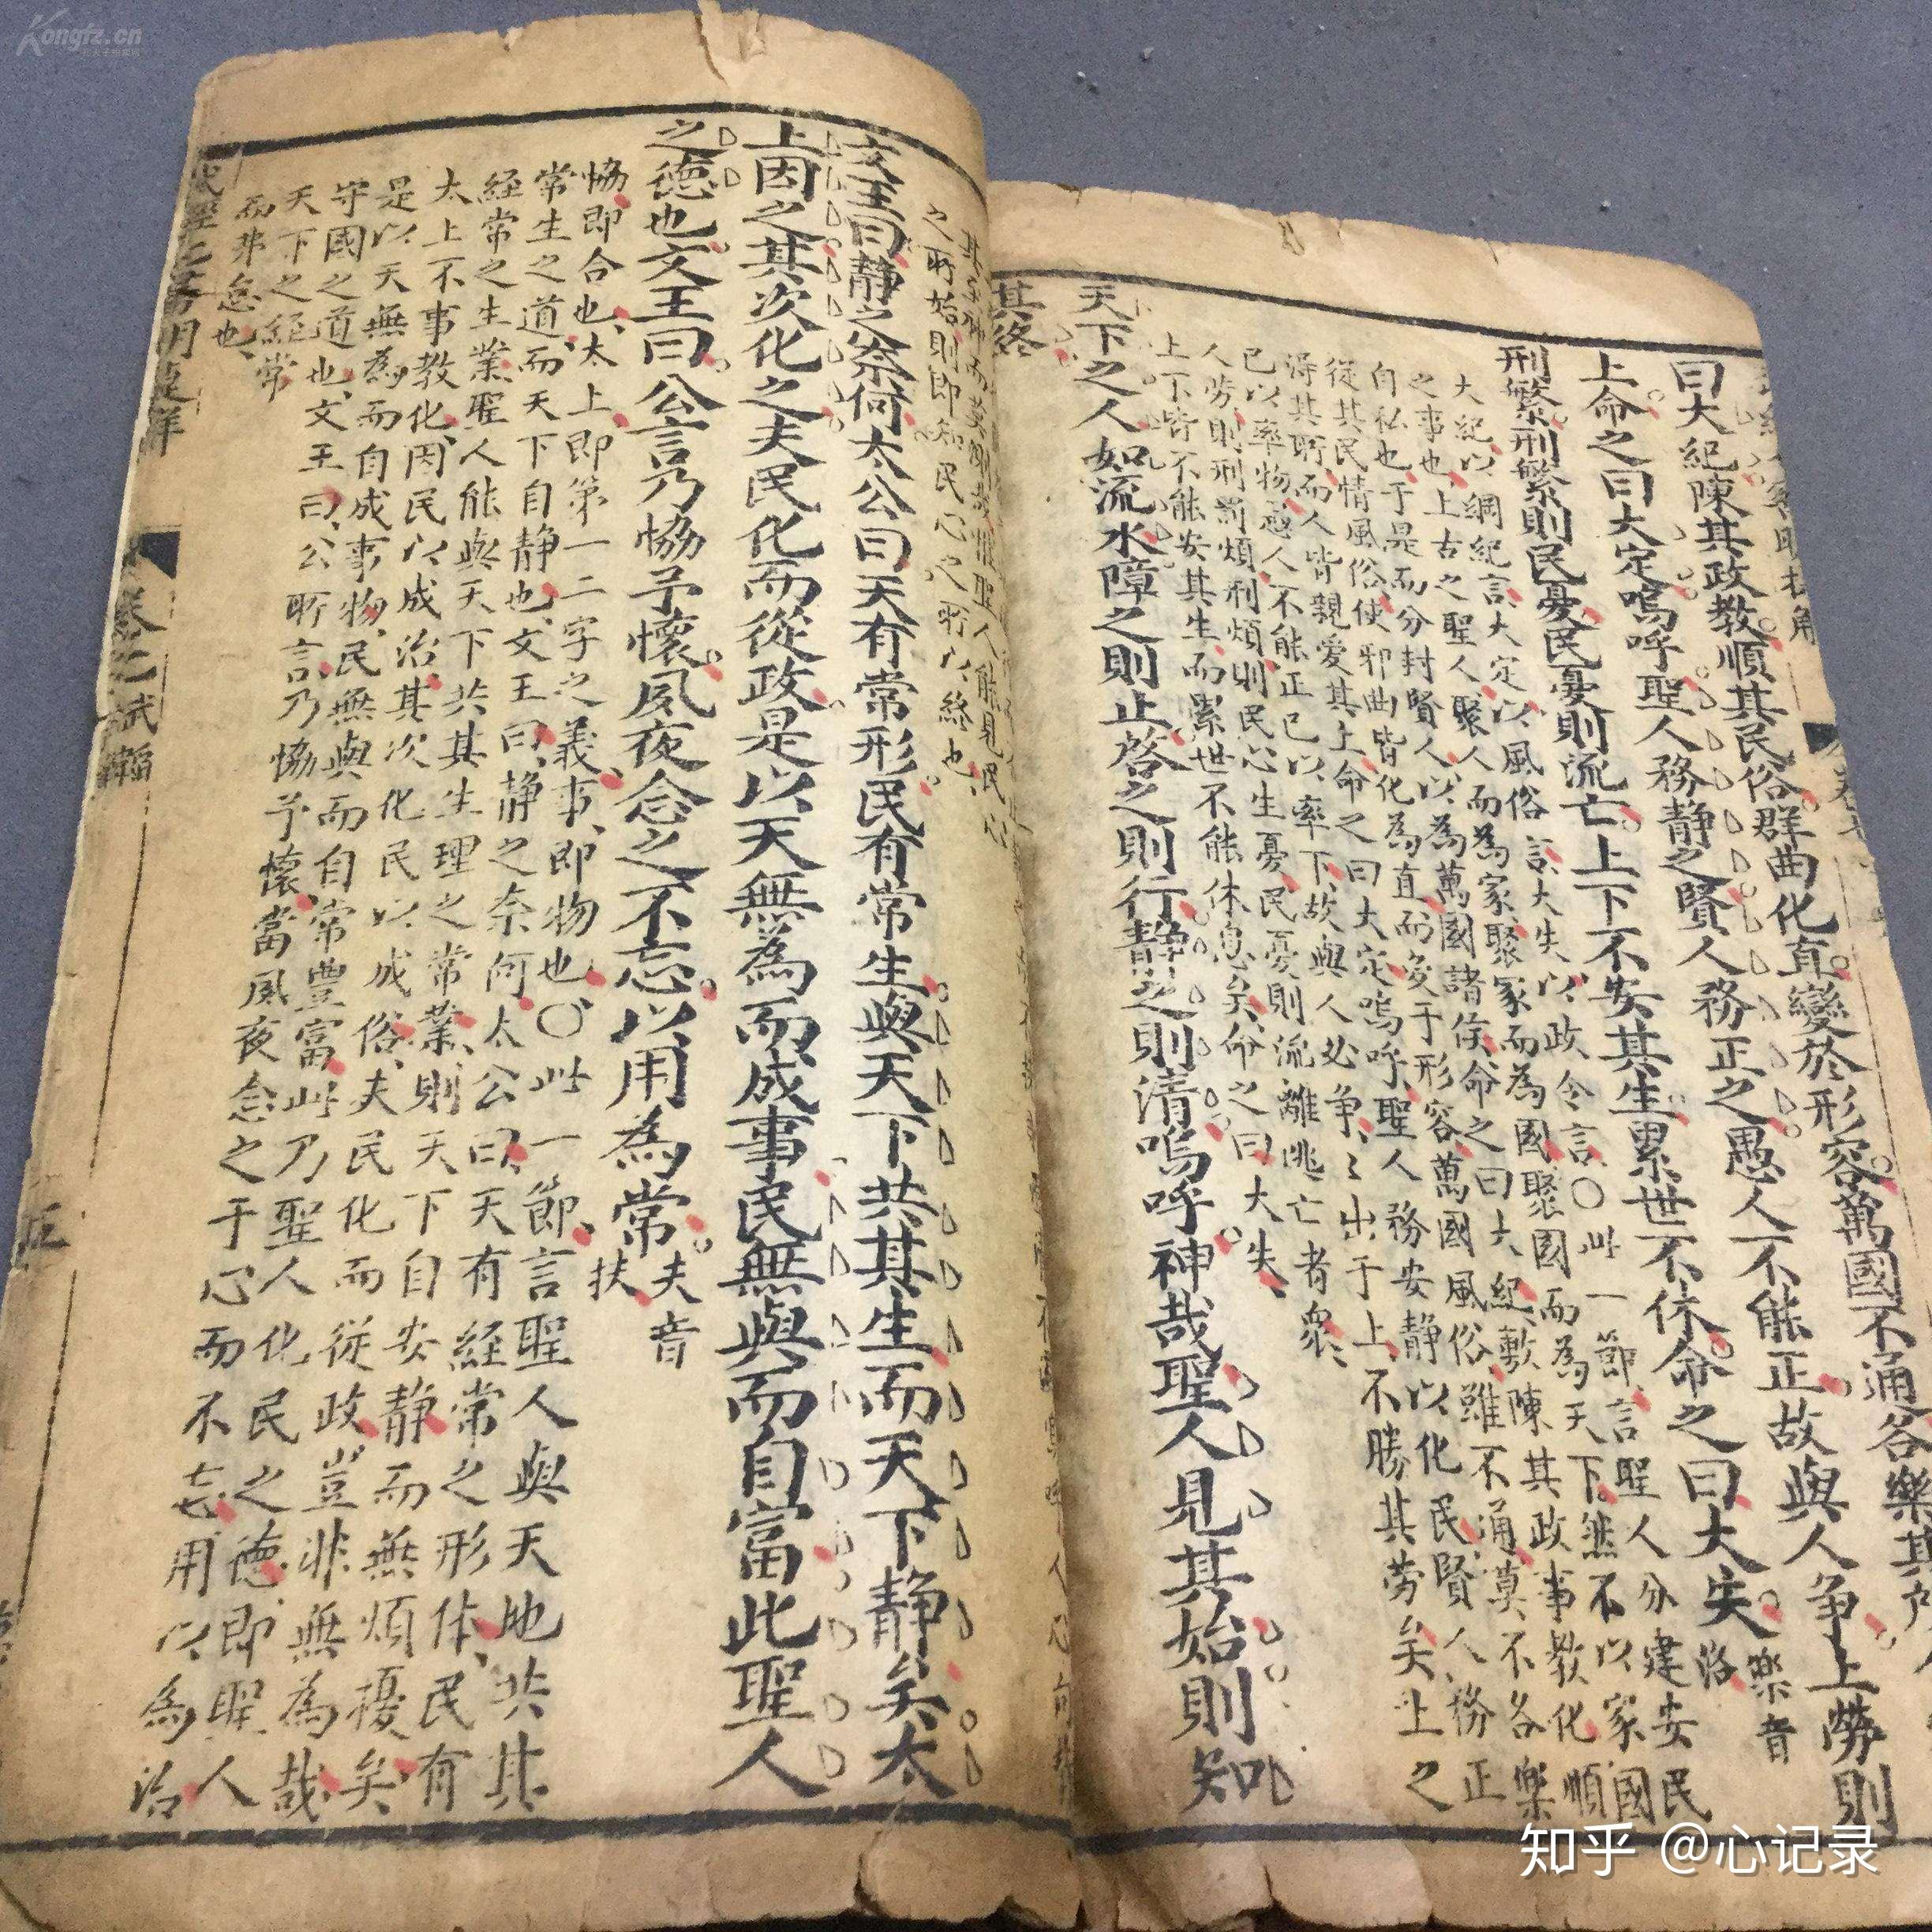 曰大紀陳其政教順其民俗群曲化直變於形容萬國不通各樂其所人
上命之曰大定嗚呼聖人務靜之賢人務正之愚人不能正故與人爭上勞則
刑繁刑繁則民憂民憂則流亡上下不安其生累世不休命之曰大失樂音
洛
大紀以綱紀言大定以風俗言大失以政令言〇此一節言聖人分建安民
之事也上古之聖人聚人而為家聚家而為國聚國而為天下然不以家國
自私也于是而分封賢人以為萬國諸侯命之曰大紀敷陳其政事教化順
從其民情風俗使邪曲皆化為直而變于形容萬國風俗雖不通莫不各樂
得其所而人皆親愛其上命之曰大定嗚呼聖人務安靜以化民賢人務正
己以率物愚人不能正己以率下故與人必爭爭出于上不勝其勞矣上之
人勞則刑罰煩刑煩則民心生憂民憂則流離逃亡者衆
上下皆不能安其生而累世不能休息矣命之曰大失
天下之人如流水障之則止啓之則行靜之則清嗚呼神哉聖人見其始則知
其終
之所始則即知民心之所以終也
文王曰靜之奈何太公曰天有常形民有常生與天下共其生而天下靜矣太
上因之其次化之夫民化而從政是以天無為而成事民無與而自富此聖人
之德也文王曰公言乃協予懷夙夜念之不忘以用為常夫音
扶
協即合也太上即第一二字之義事即物也〇此一節言聖人與天地共其
常生之道而天下自靜也文王曰靜之奈何太公曰天有經常之形体民有
經常之生業聖人能與天下共其生理之常業則天下自安靜而無煩擾矣
太上不事教化因民以成治其次化民以成俗夫民化而從政豈非無為哉
是以天無為而自成事物民無與而自常豐富此乃聖人化民之德即聖人
守國之道也文王曰公所言乃協予懷當夙夜念之于心而不忘用以為治
天下之經常
而弗怠也
卷之
武韜
五
知乎 @心记录
Kongfz.cn